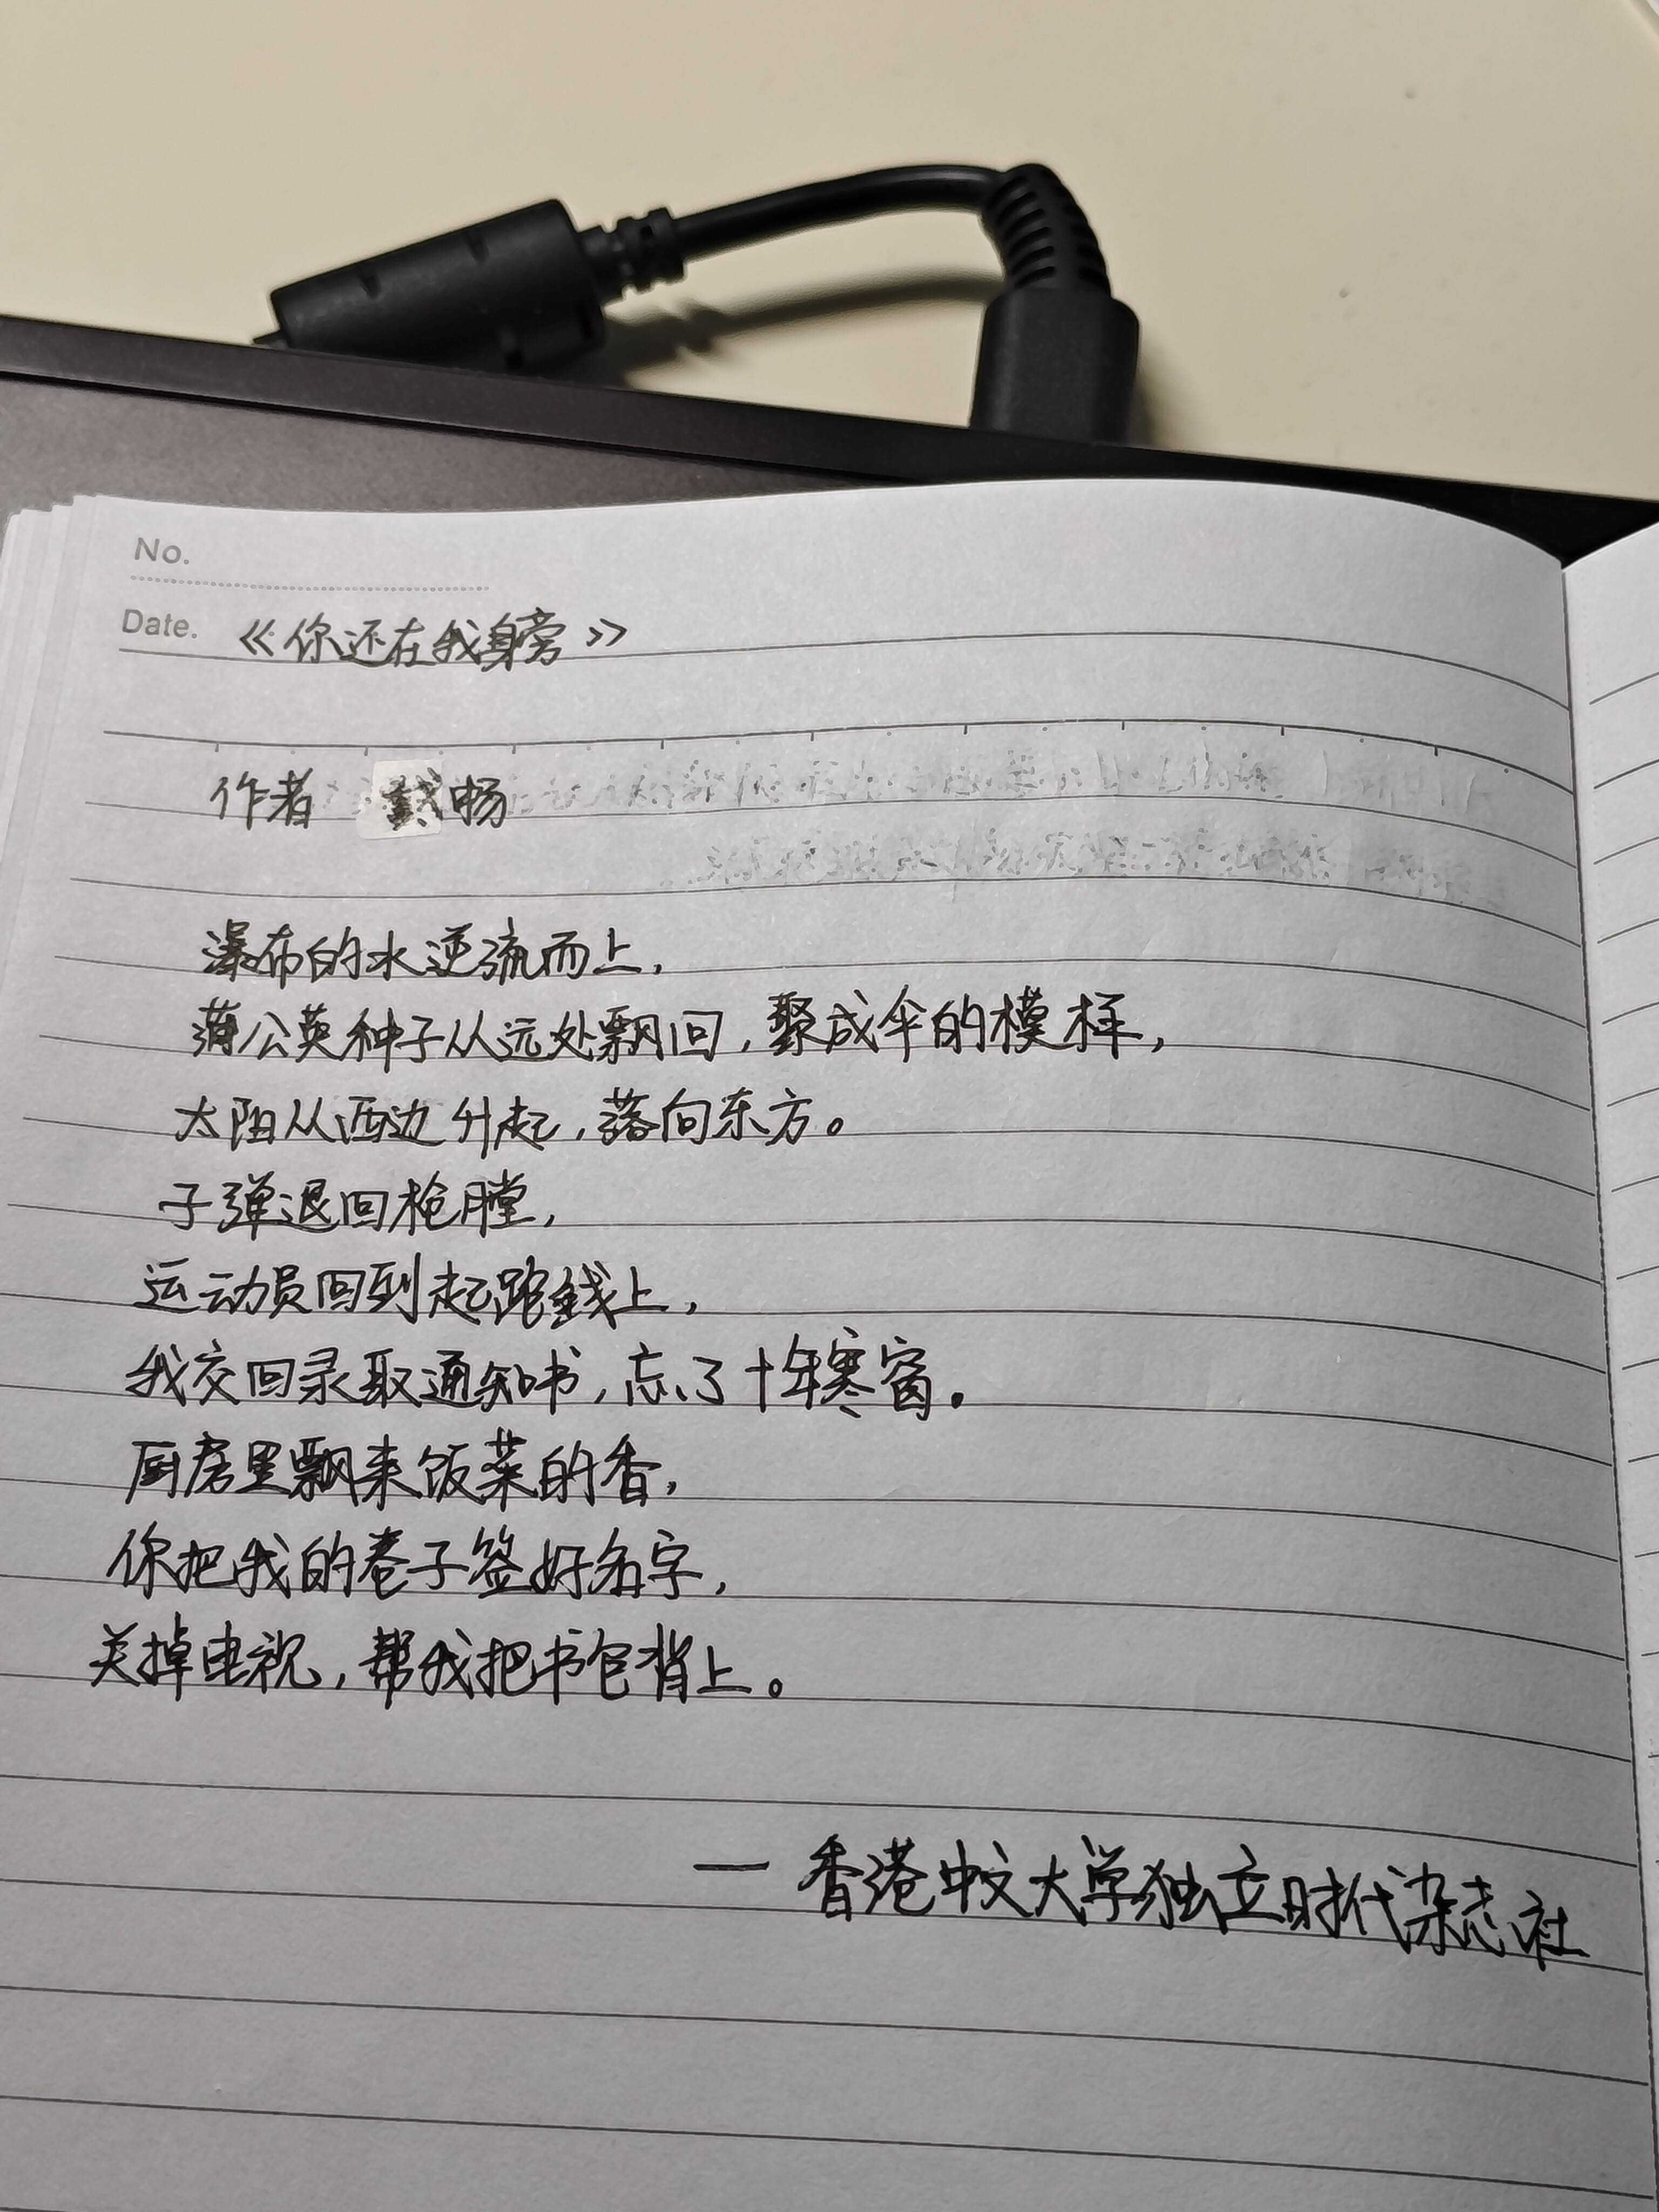 No.
Date. 《你还在我身旁》
作者 戴畅
瀑布的水逆流而上，
蒲公英种子从远处飘回，聚成伞的模样，
太阳从西边升起，落向东方。
子弹退回枪膛，
运动员回到起跑线上，
我交回录取通知书，忘了十年寒窗。
厨房里飘来饭菜的香，
你把我的卷子签好名字，
关掉电视，帮我把书包背上。
— 香港中文大学独立时代杂志社